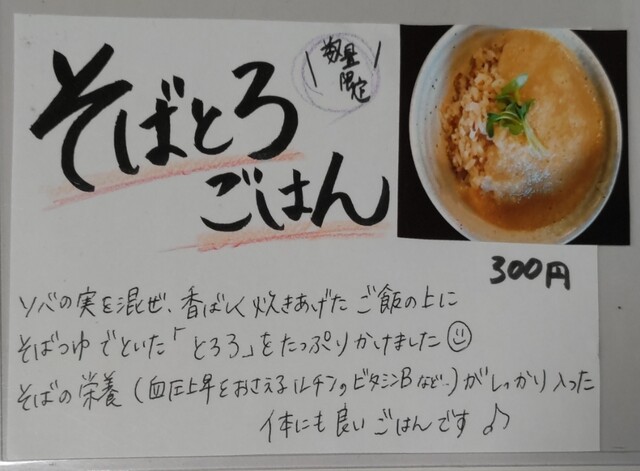 そばとろ
ごはん
数量
限定
300円
ソバの実を混ぜ、香ばしく炊きあげたご飯の上に
そばつゆでといた「とろろ」をたっぷりかけました
そばの栄養(血圧上昇をおさえるルチンやビタミンBなど…)がしっかり入った
体にも良いごはんです♪